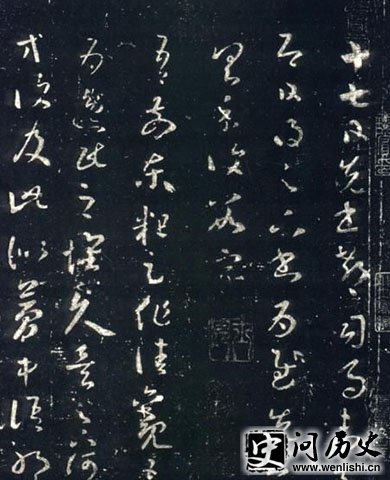 十七日先書郗司馬未
即日得足下書為慰先
具示復數字
吾前東粗足作佳觀吾
為逸民之懷久矣足下何
方復及此似夢中語耶
问历史
www.wenlishi.cn